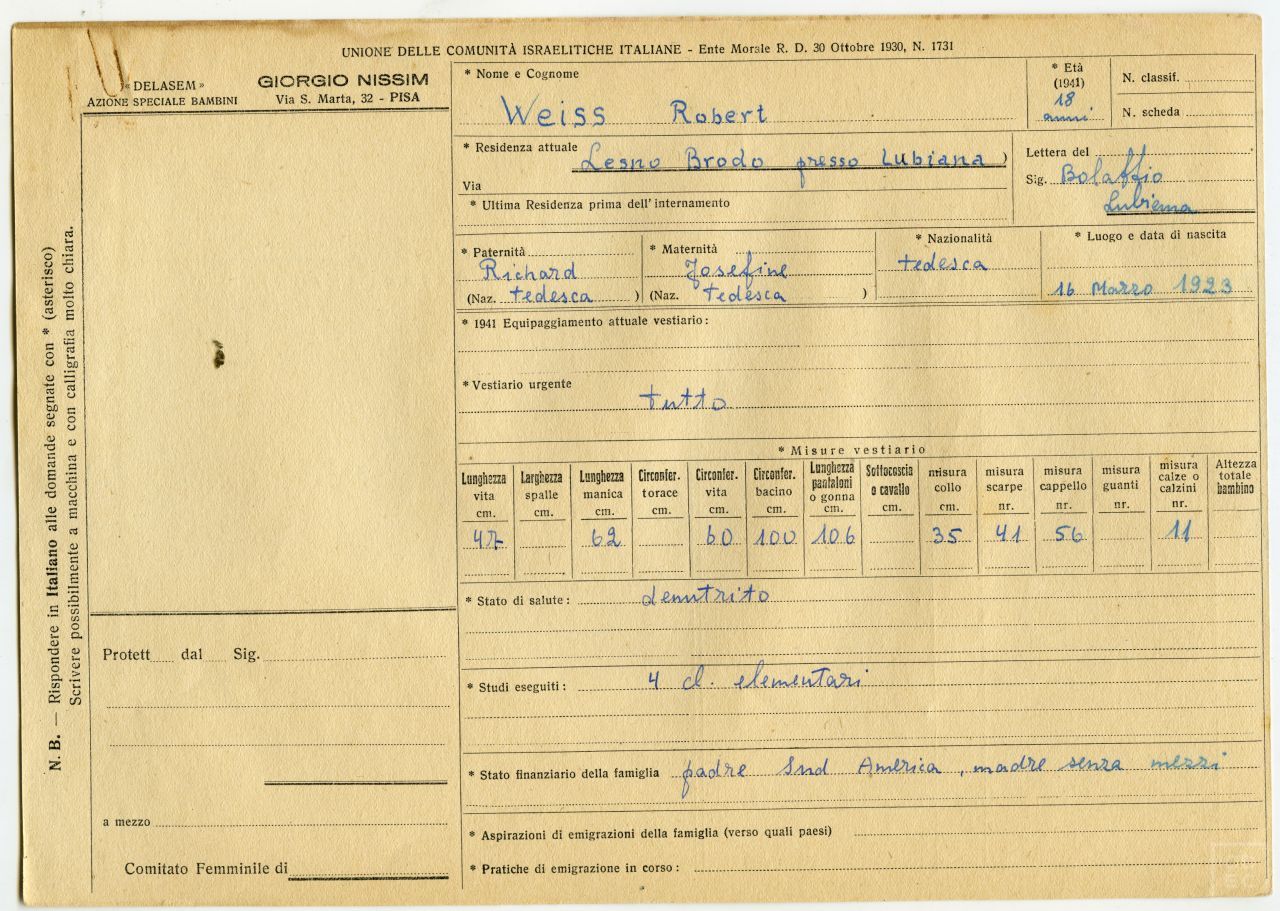 UNIONE DELLE COMUNITÀ ISRAELITICHE ITALIANE - Ente Morale R. D. 30 Ottobre 1930, N. 1731
« DELASEM »
AZIONE SPECIALE BAMBINI
GIORGIO NISSIM
Via S. Marta, 32 - PISA
N. B. — Rispondere in Italiano alle domande segnate con * (asterisco)
Scrivere possibilmente a macchina e con calligrafia molto chiara.
Protett dal Sig.
a mezzo
Comitato Femminile di
* Nome e Cognome
Weiss Robert
* Età
(1941)
18
anni
N. classif.
N. scheda
* Residenza attuale Lesno Brodo presso Lubiana )
Via
* Ultima Residenza prima dell'internamento
Lettera del
Sig. Bolaffio
Lubiana
* Paternità
Richard
(Naz. tedesca )
* Maternità
Josefine
(Naz. tedesca )
* Nazionalità
tedesca
* Luogo e data di nascita
16 Marzo 1923
* 1941 Equipaggiamento attuale vestiario:
* Vestiario urgente
tutto
* Misure vestiario
Lunghezza vita cm. 47
Larghezza spalle cm.
Lunghezza manica cm. 62
Circonfer. torace cm.
Circonfer. vita cm. 60
Circonfer. bacino cm. 100
Lunghezza pantaloni o gonna cm. 106
Sottocoscia o cavallo cm.
misura collo cm. 35
misura scarpe nr. 41
misura cappello nr. 56
misura guanti nr.
misura calze o calzini nr. 11
Altezza totale bambino
* Stato di salute: denutrito
* Studi eseguiti: 4 cl. elementari
* Stato finanziario della famiglia padre Sud America, madre senza mezzi
* Aspirazioni di emigrazioni della famiglia (verso quali paesi)
* Pratiche di emigrazione in corso: